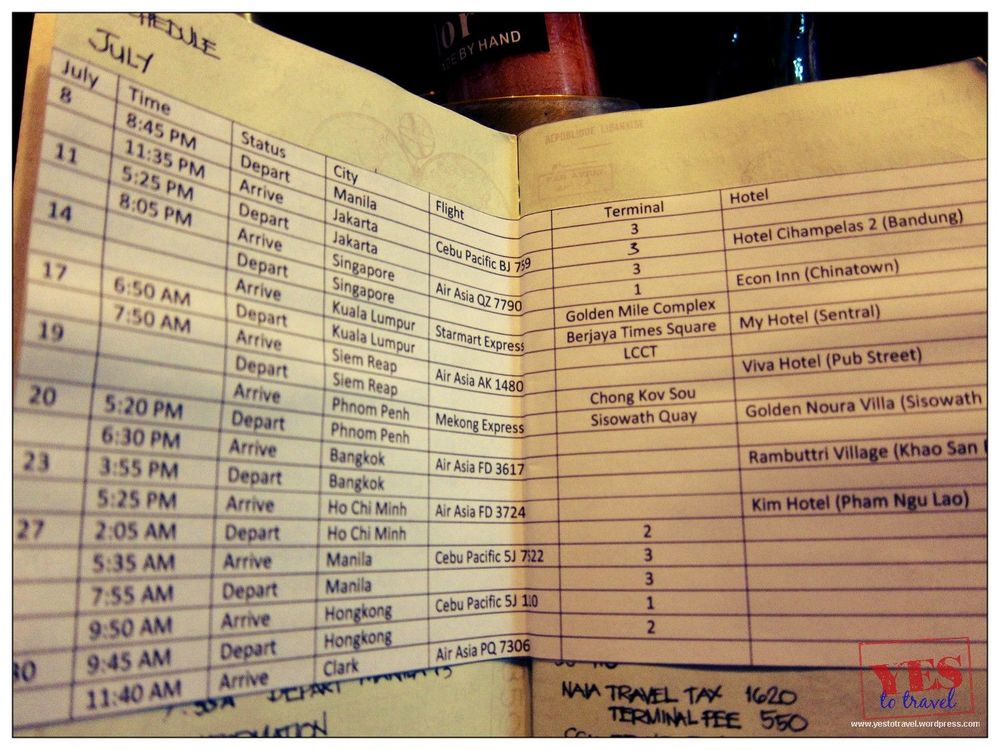 OR
MADE BY HAND
SCHEDULE
JULY
REPUBLIQUE LIBANAISE
July Time Status City Flight Terminal Hotel
8 8:45 PM Depart Manila Cebu Pacific BJ 759 3
11:35 PM Arrive Jakarta 3 Hotel Cihampelas 2 (Bandung)
11 5:25 PM Depart Jakarta Air Asia QZ 7790 3
8:05 PM Arrive Singapore 1 Econ Inn (Chinatown)
14 Depart Singapore Starmart Express Golden Mile Complex
Arrive Kuala Lumpur Berjaya Times Square My Hotel (Sentral)
17 6:50 AM Depart Kuala Lumpur Air Asia AK 1480 LCCT
7:50 AM Arrive Siem Reap Viva Hotel (Pub Street)
19 Depart Siem Reap Mekong Express Chong Kov Sou
Arrive Phnom Penh Sisowath Quay Golden Noura Villa (Sisowath
20 5:20 PM Depart Phnom Penh Air Asia FD 3617
6:30 PM Arrive Bangkok Rambuttri Village (Khao San
23 3:55 PM Depart Bangkok Air Asia FD 3724
5:25 PM Arrive Ho Chi Minh Kim Hotel (Pham Ngu Lao)
27 2:05 AM Depart Ho Chi Minh Cebu Pacific 5J 7522 2
5:35 AM Arrive Manila 3
7:55 AM Depart Manila Cebu Pacific 5J 110 3
9:50 AM Arrive Hongkong 1
30 9:45 AM Depart Hongkong Air Asia PQ 7306 2
11:40 AM Arrive Clark
DEPART
NAIA TRAVEL TAX 1620
TERMINAL FEE 550
YES
to travel
www.yestotravel.wordpress.com